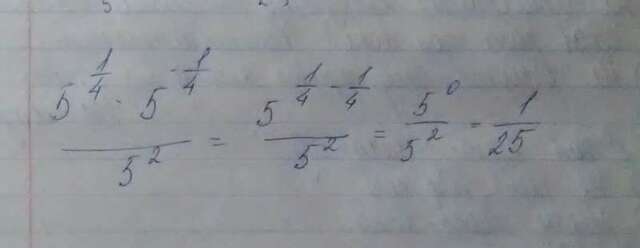 5^{1/4} · 5^{-1/4} / 5^2 = 5^{1/4 - 1/4} / 5^2 = 5^0 / 5^2 = 1/25